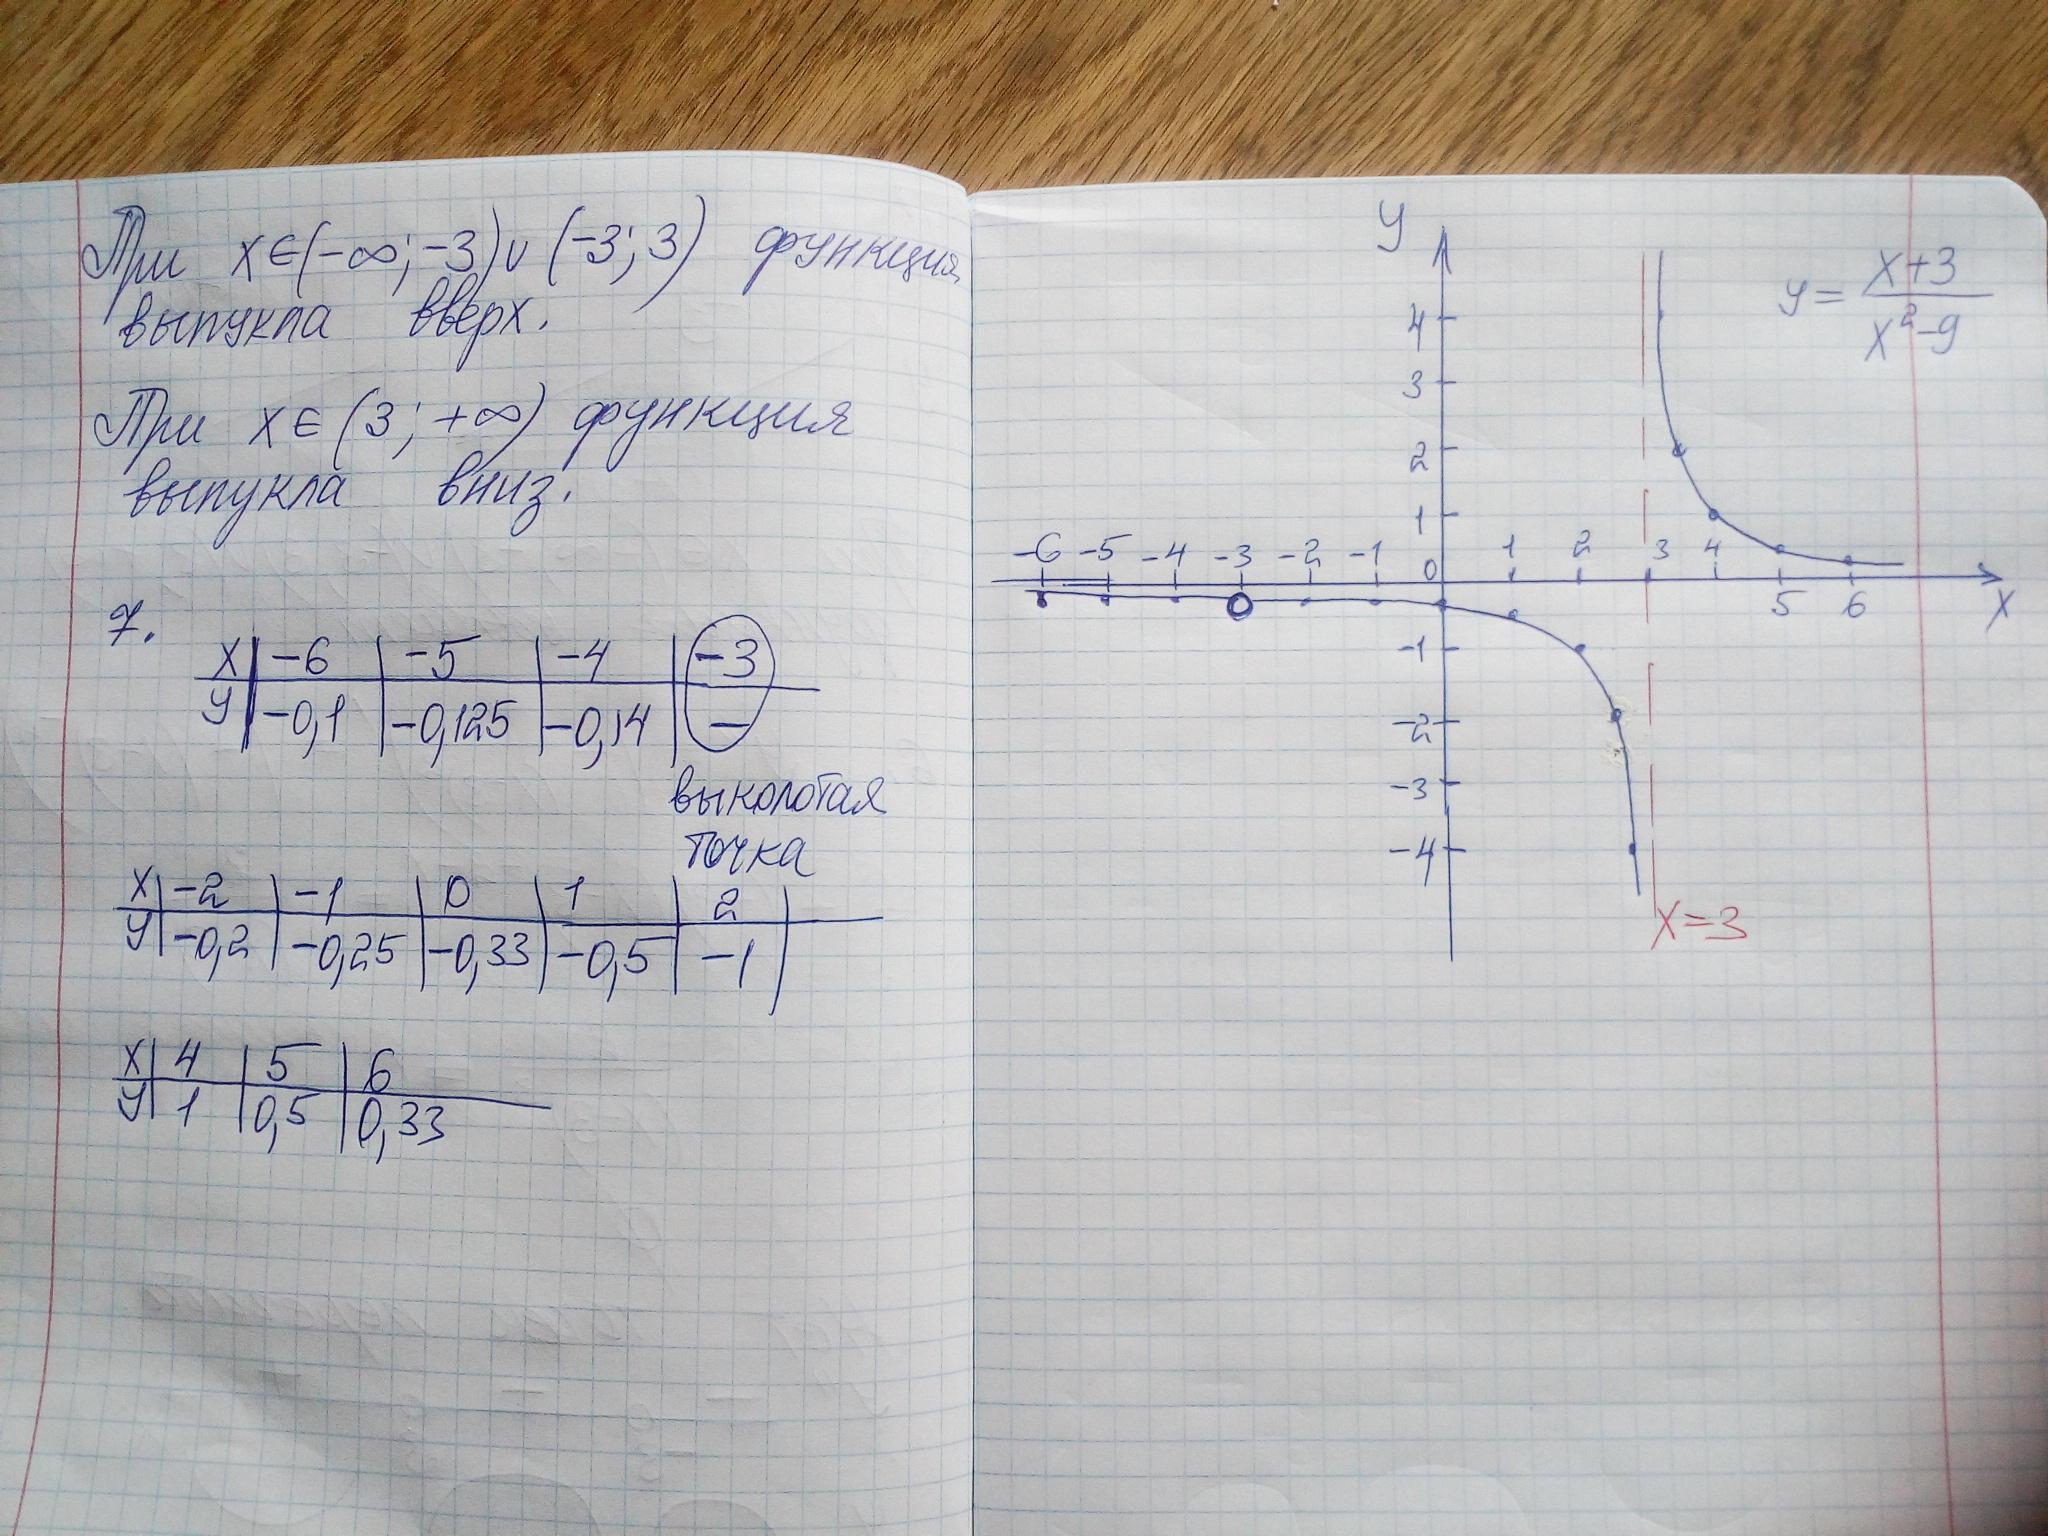 При x∈(-∞; -3)∪(-3; 3) функция
выпукла вверх.
При x∈(3; +∞) функция
выпукла вниз.
7.
x | -6 | -5 | -4 | -3
y | -0,1 | -0,125 | -0,14 | –
выколотая
точка
x | -2 | -1 | 0 | 1 | 2
y | -0,2 | -0,25 | -0,33 | -0,5 | -1
x | 4 | 5 | 6
y | 1 | 0,5 | 0,33
y
y = (x+3)/(x²-9)
4
3
2
1
-6 -5 -4 -3 -2 -1 0 1 2 3 4
5 6 x
-1
-2
-3
-4
x=3